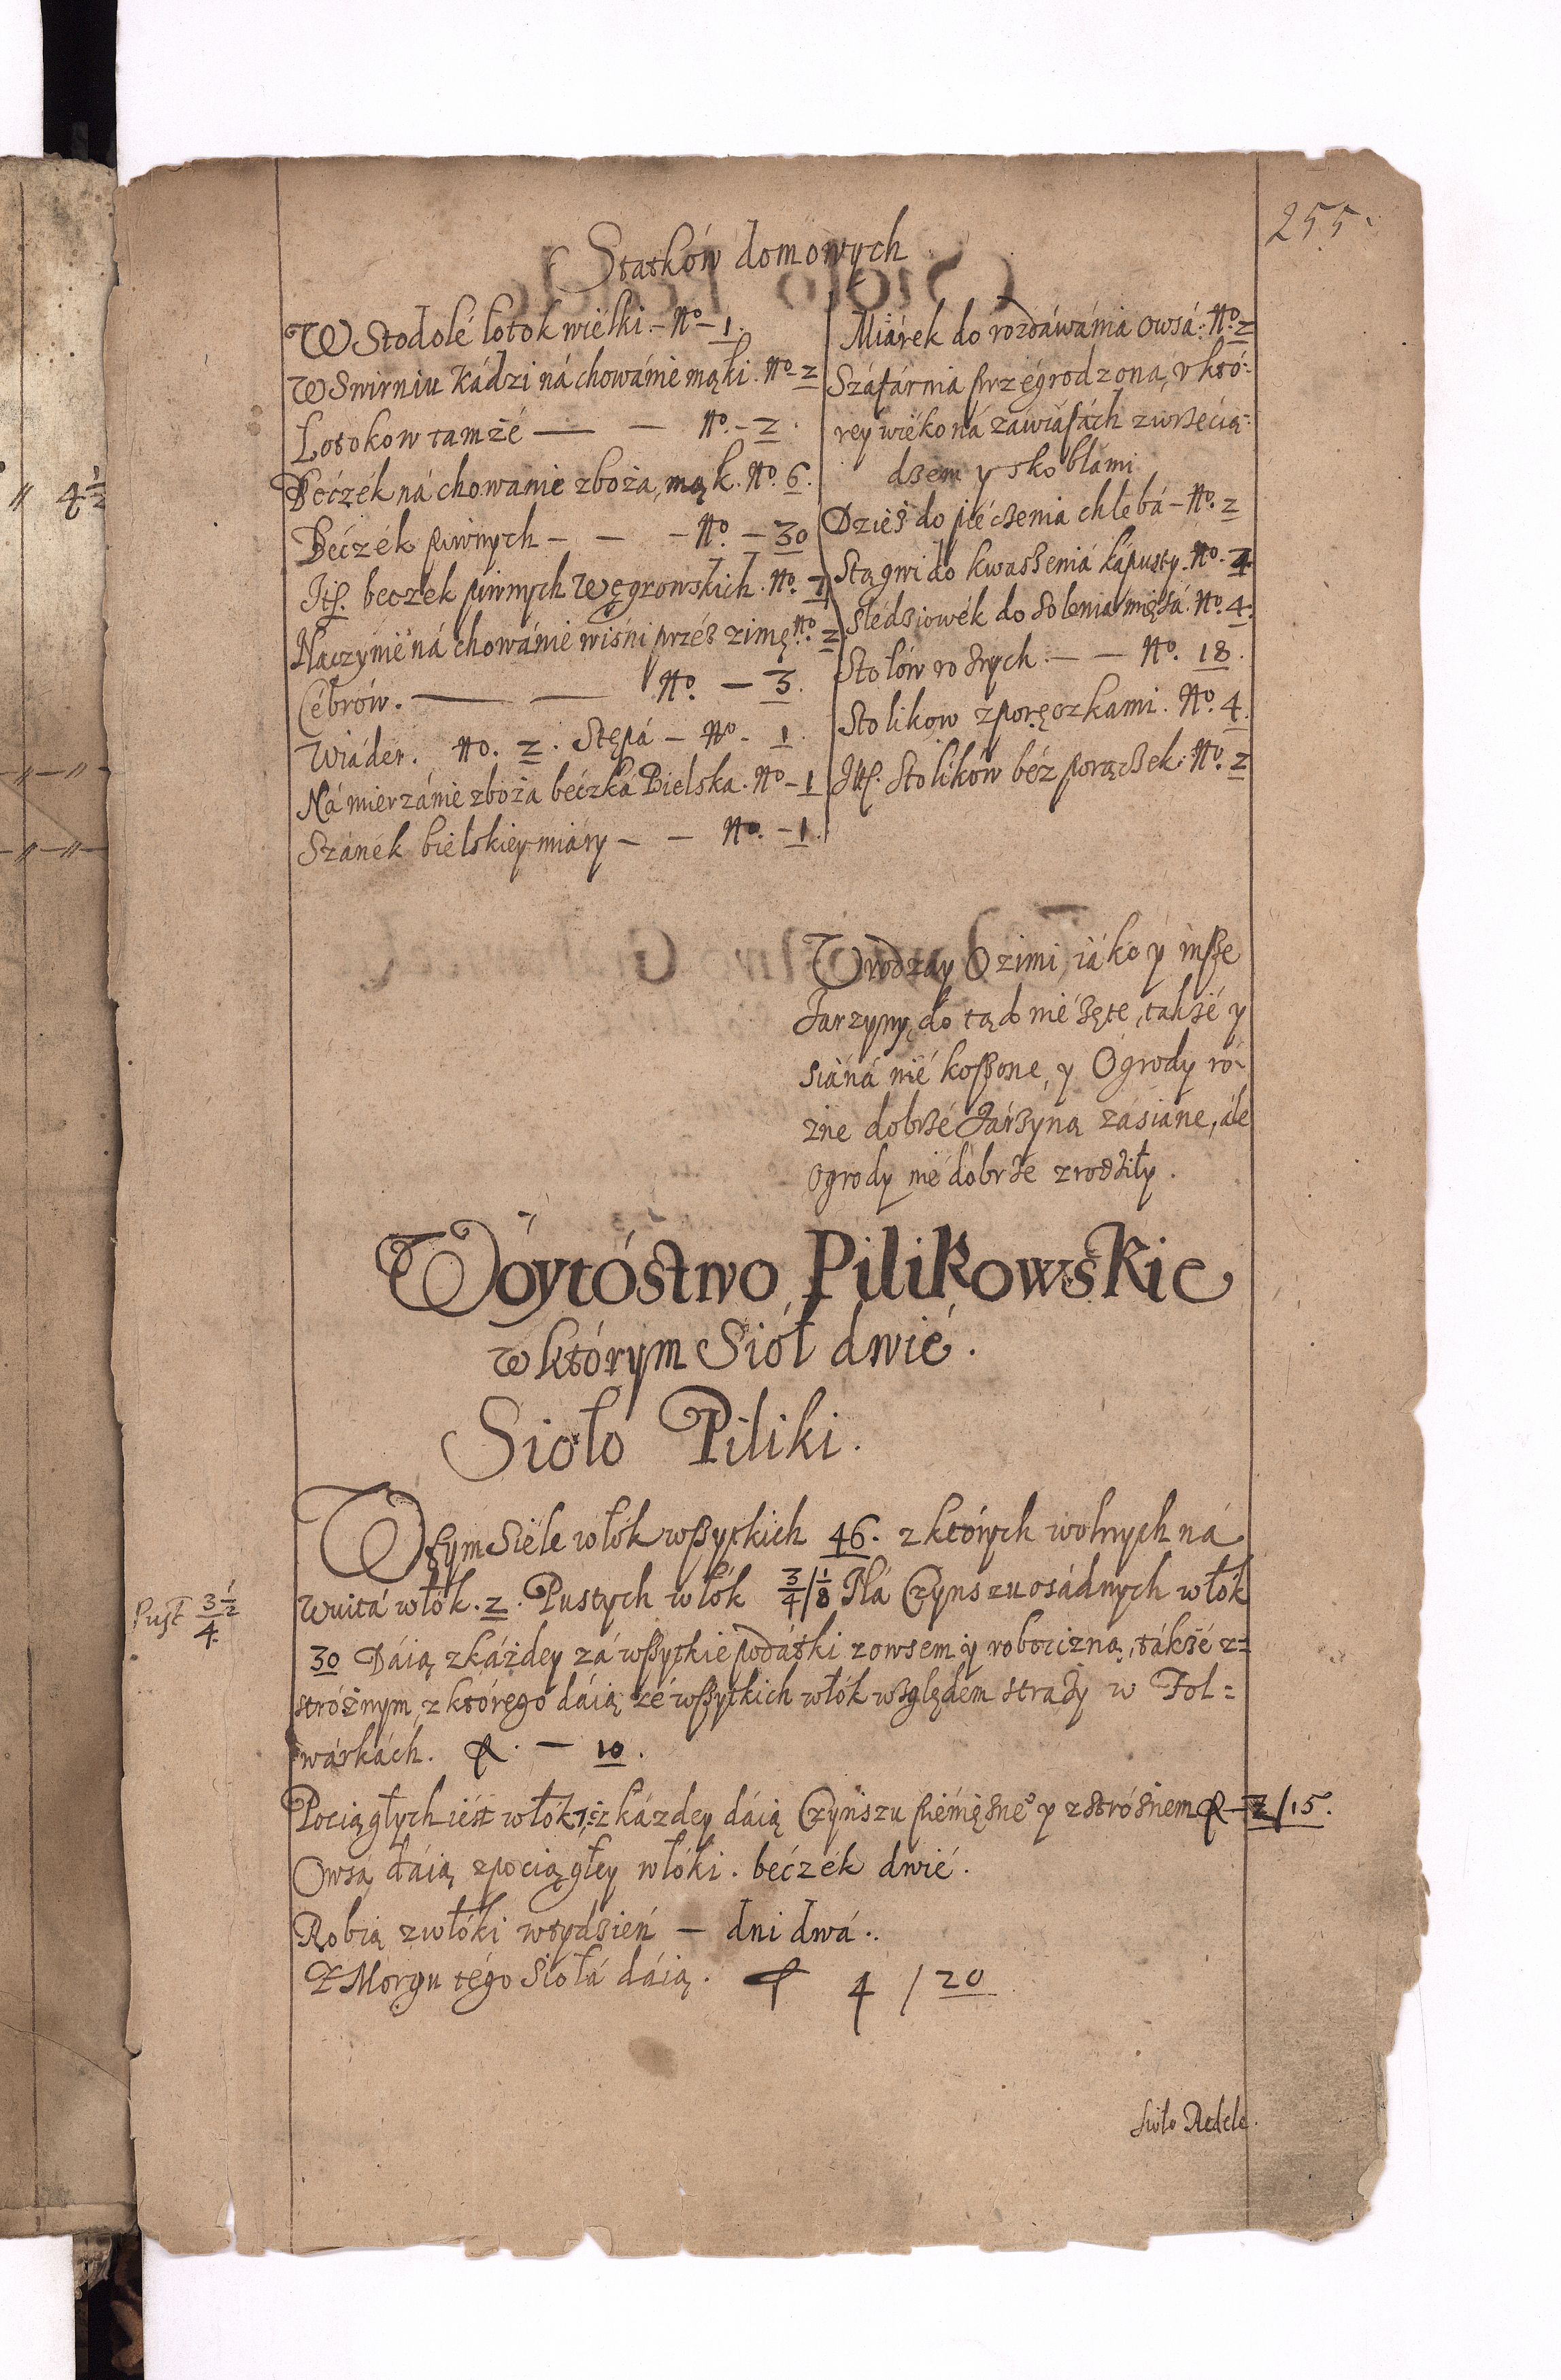 255
Statków domowych
W Stodolé lotok wielki. – No – 1.
W Swirniu Kádzi ná chowánie mąki. No – 2
Lotokow tamże — — No. – 2.
Beczék ná chowanie zboża, mąk. No. 6.
Beczék piwnych – – – No. – 30
Its. beczek piwnych Węgrowskich. No. 7
Naczynié ná chowánie wiśni przéz zimę No. 2
Cébrów. — — No. – 3.
Wiáder. No. 2. Stępá – No – 1.
Ná mierzánie zboża beczká Bielska. No – 1
Szánék bielskiey miáry – – No. – 1.
Miárek do rozdáwánia owsá. No. 2
Száfárnia przégrodzona, w któ:
rey wieko ná záwiásách z wrzecią:
dzem y skoblámi
Dzież do pieczenia chlebá – No. 2
Stągwi do kwaszenia kápusty. No. 4.
Sledziowék do solenia mięsá. No. 4.
Stołów rożnych – – No. 18.
Stolikow z poręczkami. No. 4.
Its. Stolików béz porączek. No. 2
Urodzay Ozimi, iáko y insze
Jarzyny, do tąd nié zęte, takżé y
siáná nié koszone, y Ogrody ró-
żne dobrzé Járzyną zásiane, ále
ogrody nié dobrze zrodziły.
Wóytóstwo Pilikowskie
w którym Siół dwié.
Sioło Piliki.
W tym Siele włók wszytkich 46. z których wolnych ná
Wuitá włók. 2. Pustych włók 3/4/1/8 Ná Czynszu osádnych włók
30 Dáią z káżdey zá wszytkie podátki z owsem y robocizną, tákżé z=
stróżnym, z którego dáią zé wszytkich włók względem straży w Fol=
wárkách. R. – 10.
Pust 3 1/2
4.
Pociągłych iést włók z káżdey dáią Czynszu piéniężne° y z stróżnem R – 2/15.
Owsá dáią z pociągłey włóki. beczék dwié.
Robią z włóki w tydzień – dni dwá.
Z Morgu tégo Siołá dáią. R 4 / 20
Sioło Redele.
4 1/2